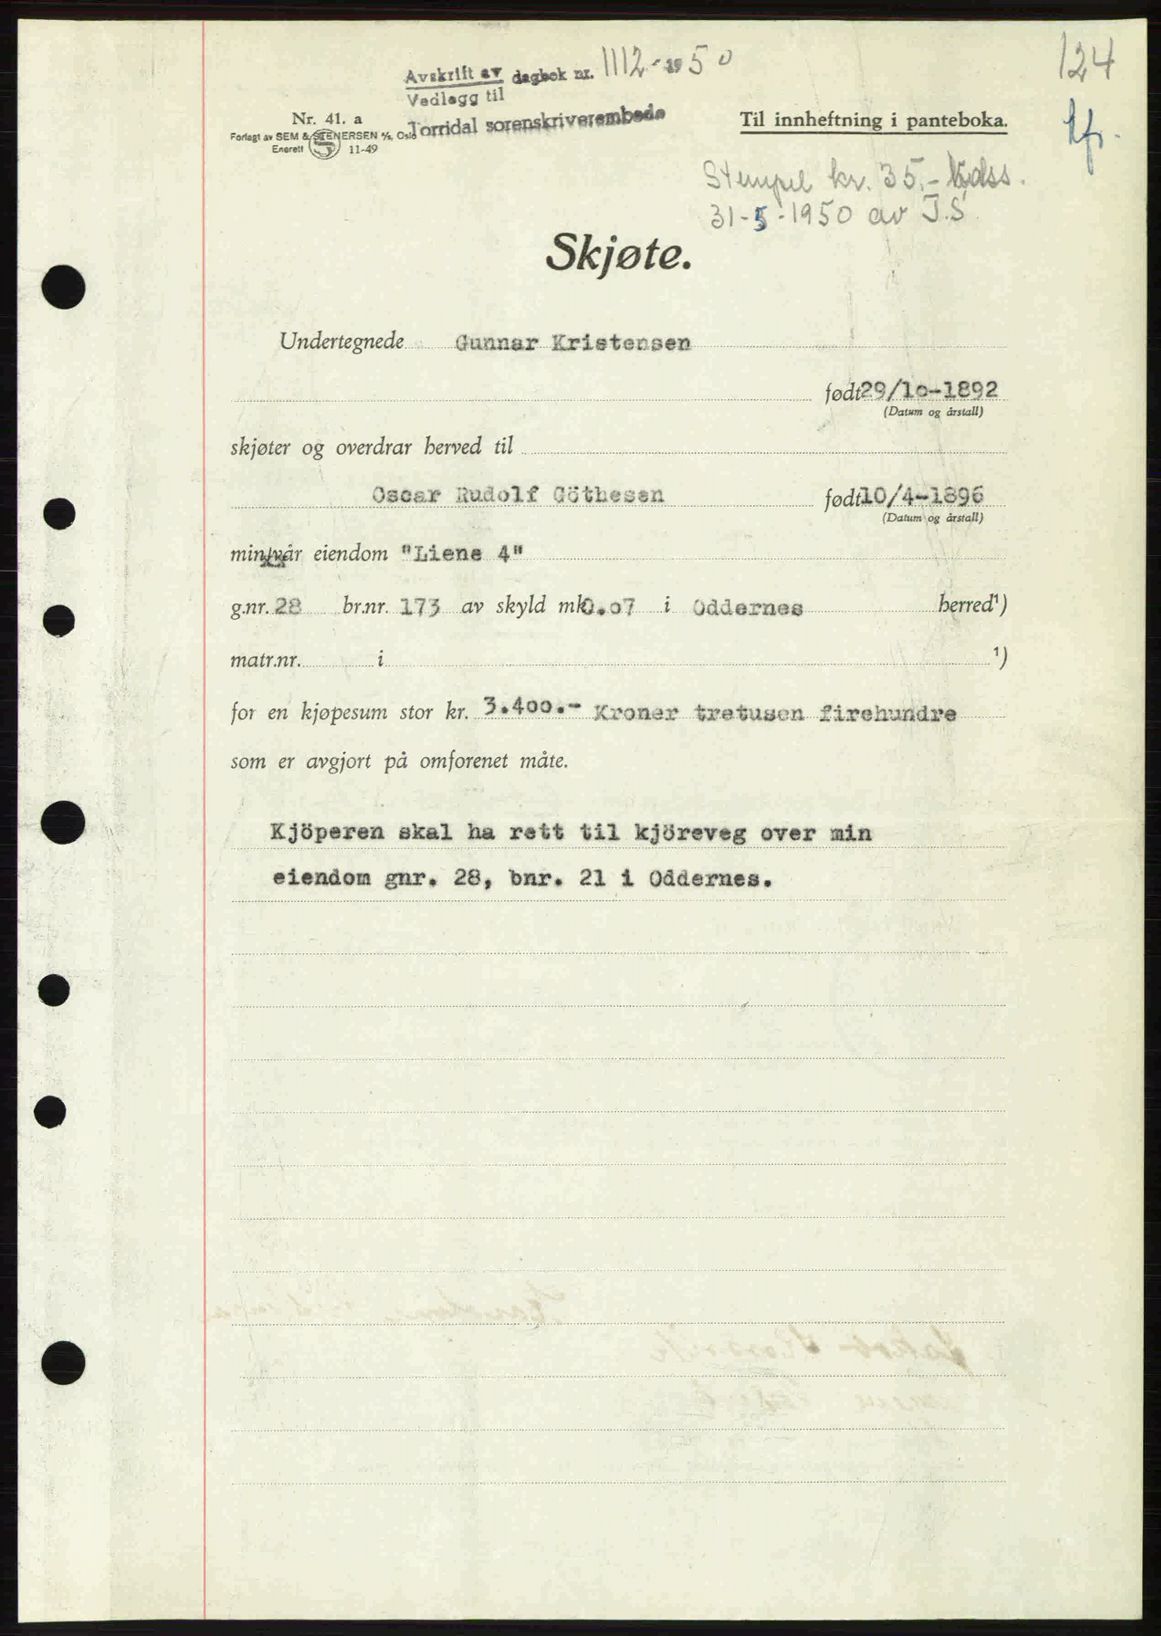 124
Avskrift av dagbok nr. 1112 - 1950
Vedlegg til
Torridal sorenskriverembede
Nr. 41. a
Forlagt av SEM & STENERSEN A/S, Oslo
Enerett S 11-49
Til innheftning i panteboka.
Stempel kr. 35,- kass.
31-5-1950 av J.S.
Skjøte.
Undertegnede Gunnar Kristensen
født 29/10-1892
(Datum og årstall)
skjøter og overdrar herved til
Oscar Rudolf Göthesen født 10/4-1896
(Datum og årstall)
min/vår eiendom "Liene 4"
g.nr. 28 br.nr. 173 av skyld mk 0.07 i Oddernes herred¹)
matr.nr. i ¹)
for en kjøpesum stor kr. 3.400.- Kroner tretusen firehundre
som er avgjort på omforenet måte.
Kjöperen skal ha rett til kjöreveg over min
eiendom gnr. 28, bnr. 21 i Oddernes.